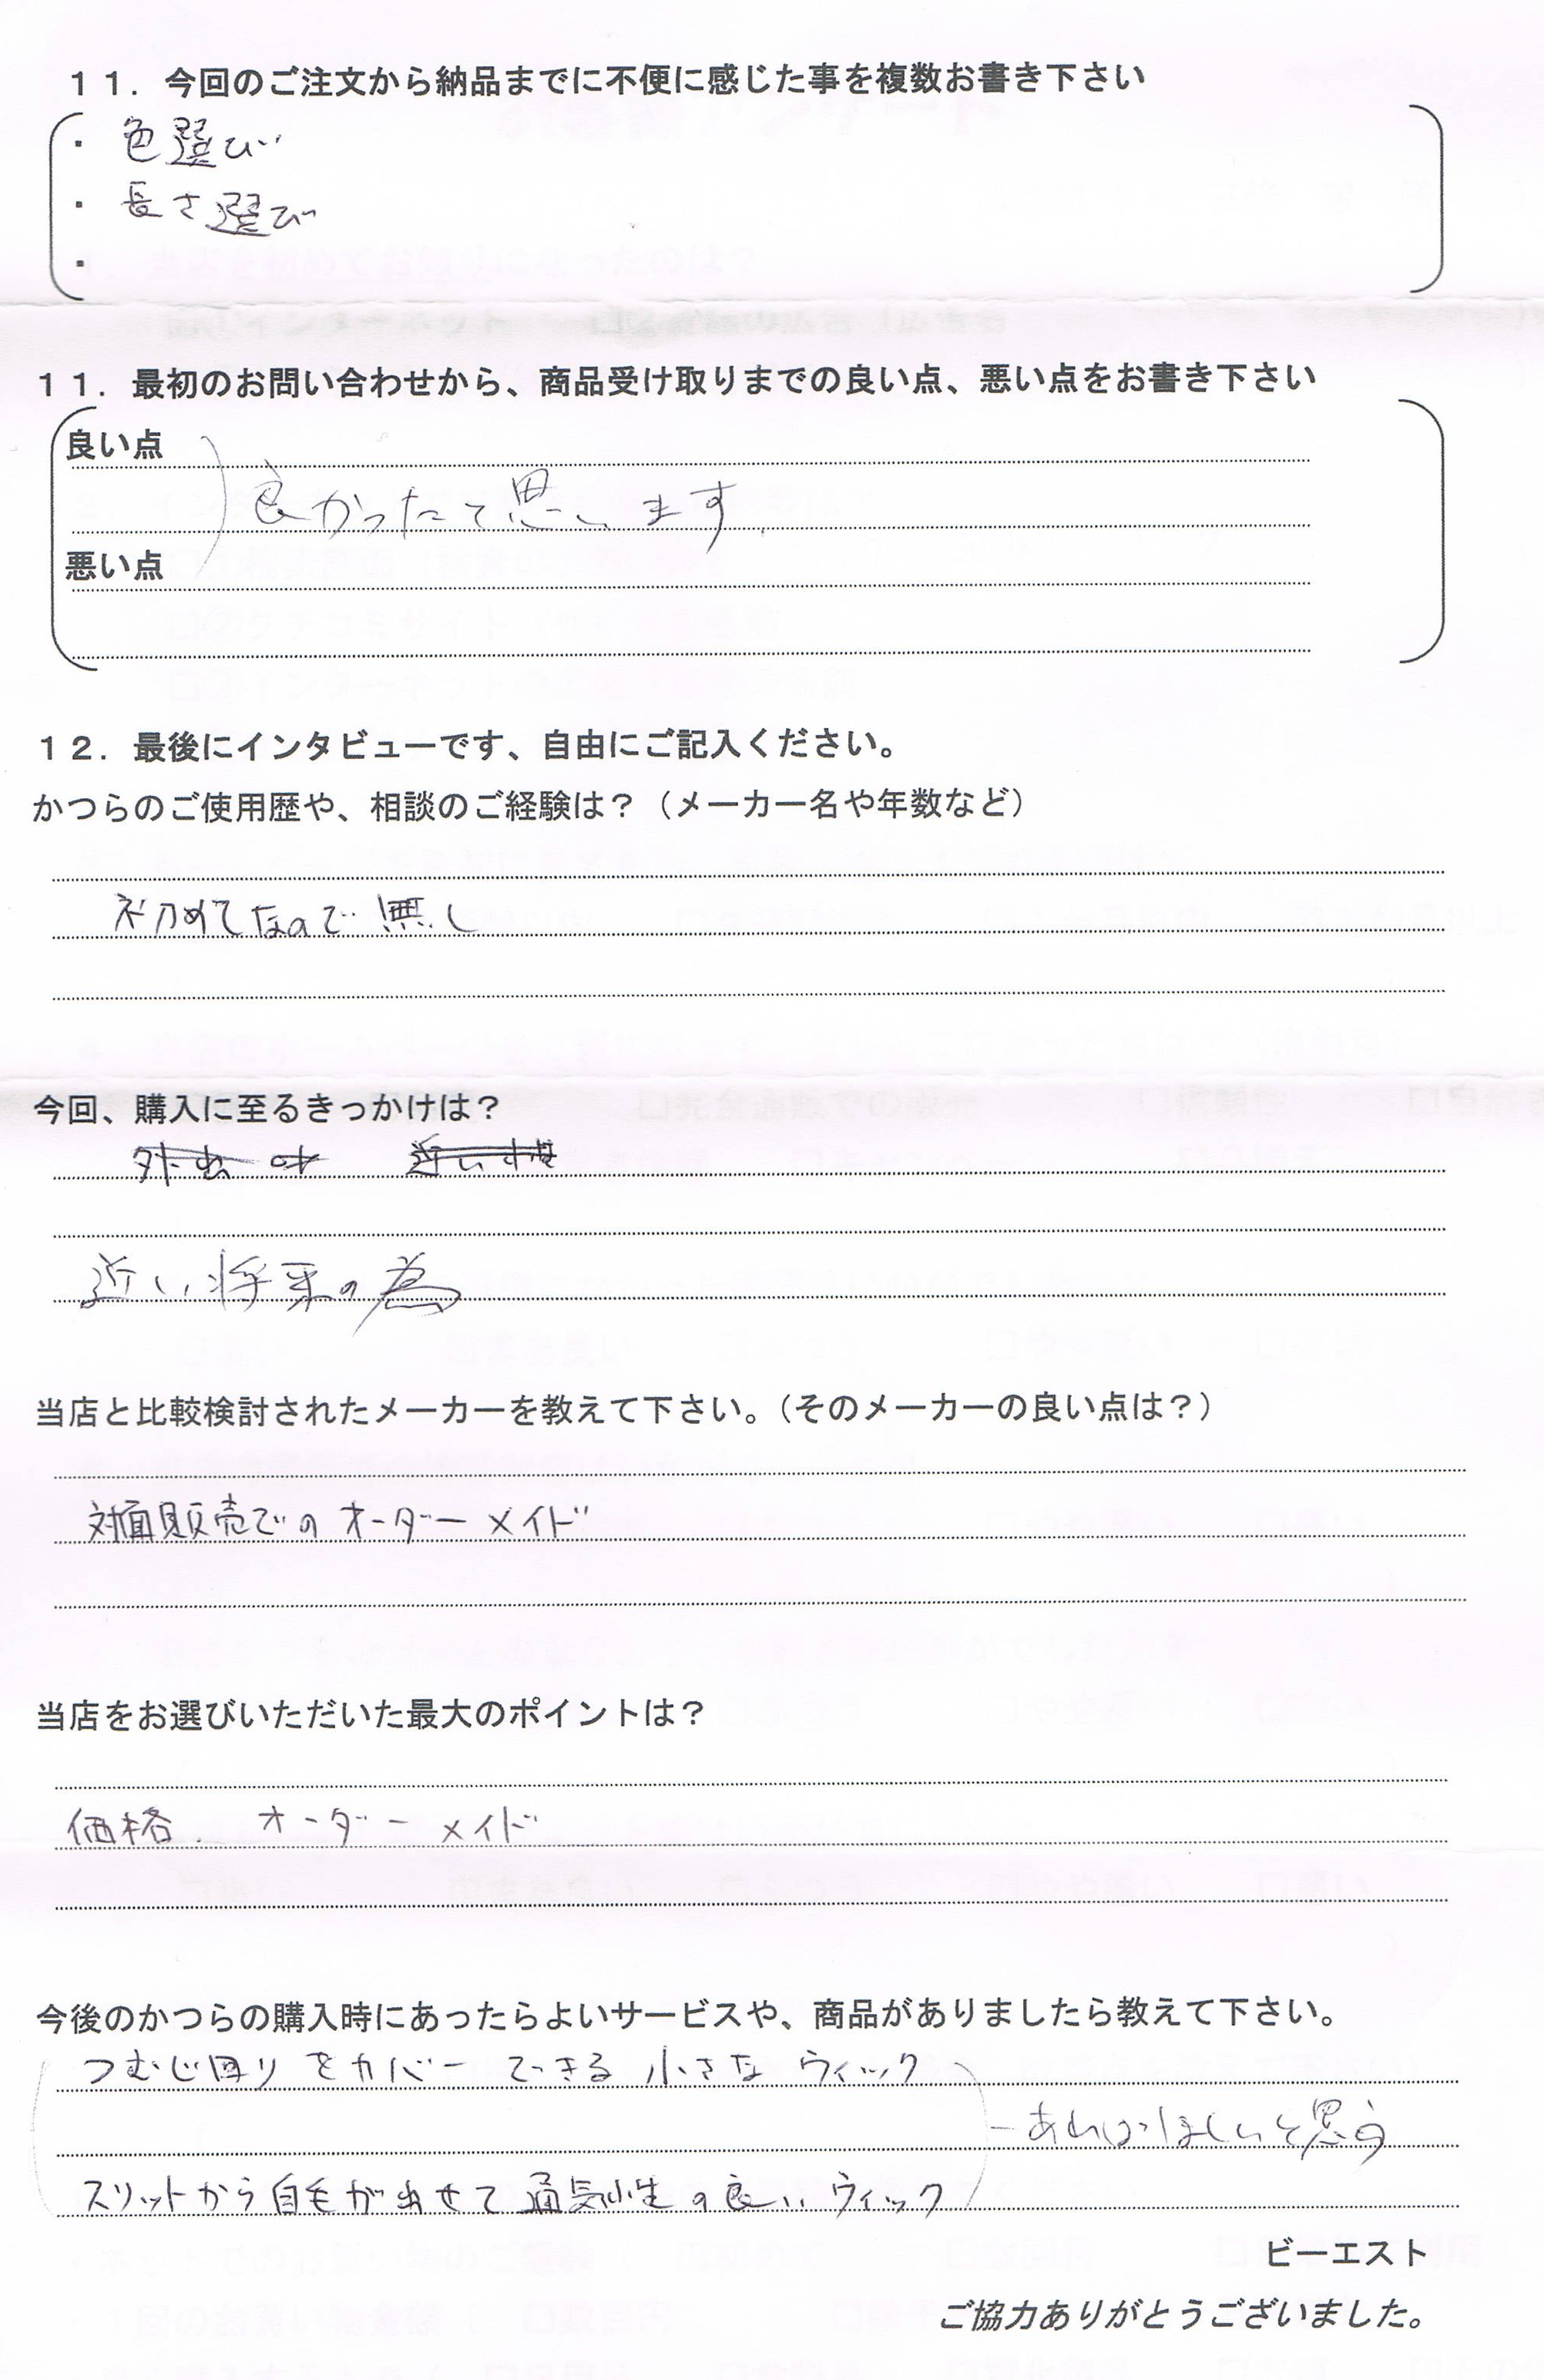 １１．今回のご注文から納品までに不便に感じた事を複数お書き下さい
・ 色選び
・ 長さ選び
・
１１．最初のお問い合わせから、商品受け取りまでの良い点、悪い点をお書き下さい
良い点
良かったて思います
悪い点
１２．最後にインタビューです、自由にご記入ください。
かつらのご使用歴や、相談のご経験は？（メーカー名や年数など）
初めてなので無し
今回、購入に至るきっかけは？
近い将来の為
当店と比較検討されたメーカーを教えて下さい。（そのメーカーの良い点は？）
対面販売でのオーダーメイド
当店をお選びいただいた最大のポイントは？
価格． オーダーメイド
今後のかつらの購入時にあったらよいサービスや、商品がありましたら教えて下さい。
つむじ回りをカバーできる小さなウィック
あればほしいと思う
スリットから自毛が出せて通気性の良いウィック
ビーエスト
ご協力ありがとうございました。